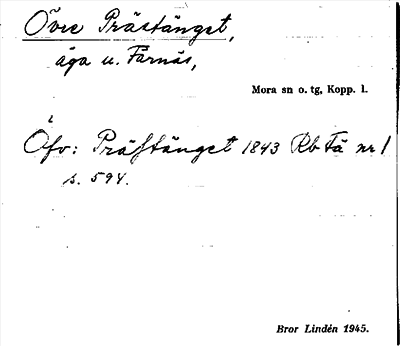 Övre Prästänget,
äga u. Färnäs,
Mora sn o. tg, Kopp. l.
Öfv: Präſtänget 1843 Rb Fä nr 1
s. 594.
Bror Lindén 1945.